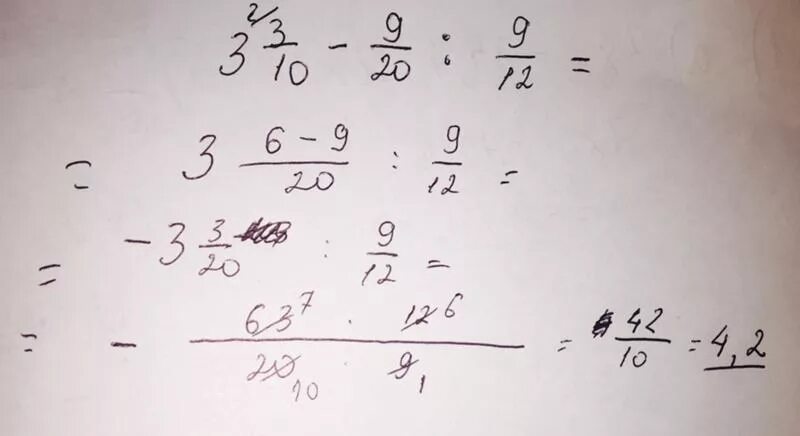 3 2/ 3/10 - 9/20 : 9/12 =
= 3 (6 - 9)/20 : 9/12 =
= - 3 3/20 : 9/12 =
= - (63 7 · 12 6)/(20 10 · 9 1) = 42/10 = 4,2